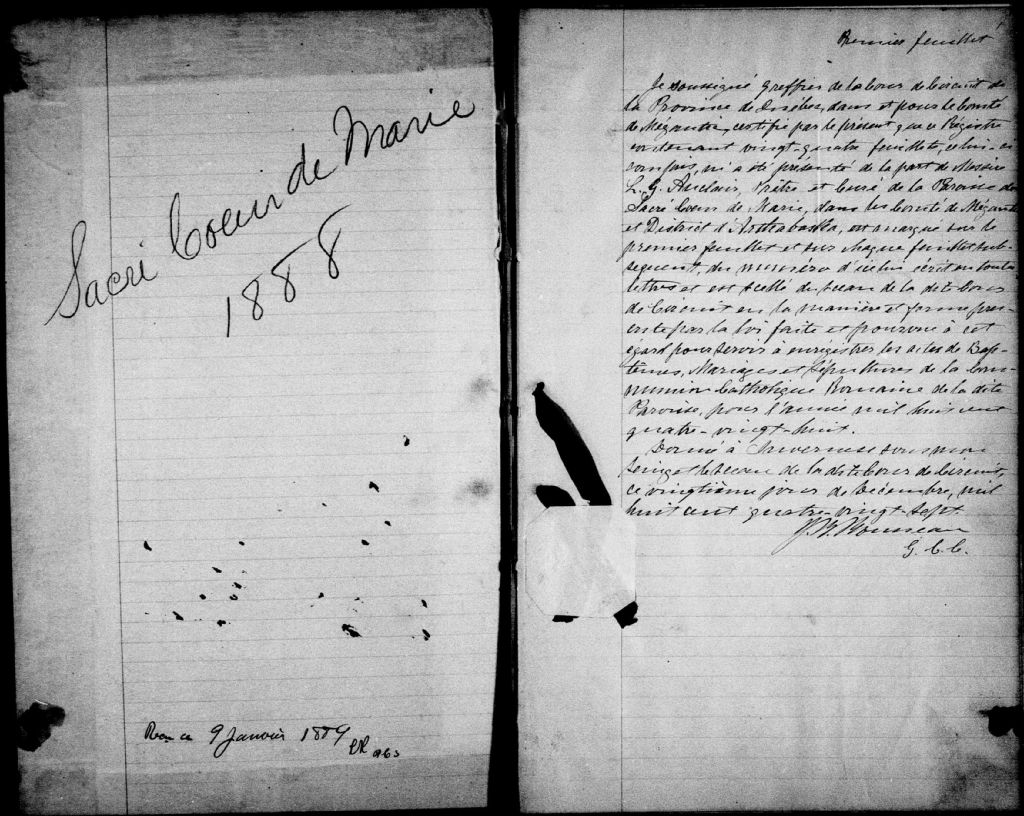 Sacré Coeur de Marie
1888
9 Janvier 1889
Premier feuillet
Je soussigné Greffier de la Cour de Circuit de
la Province de Québec, dans et pour le Comté
de Mégantic, certifie par le présent que ce Régistre
contenant vingt-quatre feuillets, celui-ci
compris, m'a été présenté de la part de Messire
L. G. Auclair, Prêtre et Curé de la Paroisse du
Sacré Coeur de Marie, dans les Comté de Mégantic
et District d'Arthabaska, est marqué sur le
premier feuillet et sur chaque feuillet sub-
séquent, du numéro d'icelui écrit en toutes
lettres et est scellé du sceau de la dite Cour
de Circuit en la manière et forme pres-
crite par la loi faite et pourvue à cet
égard pour servir à enrégistrer les actes de Bap-
têmes, Mariages et Sépultures de la Com-
munion Catholique Romaine de la dite
Paroisse, pour l'année mil huit cent
quatre-vingt-huit.
Donné à Inverness sous mon
seing et le sceau de la dite Cour de Circuit,
ce vingtième jour de Décembre, mil
huit cent quatre-vingt-sept.
Rousseau
G. C. C.